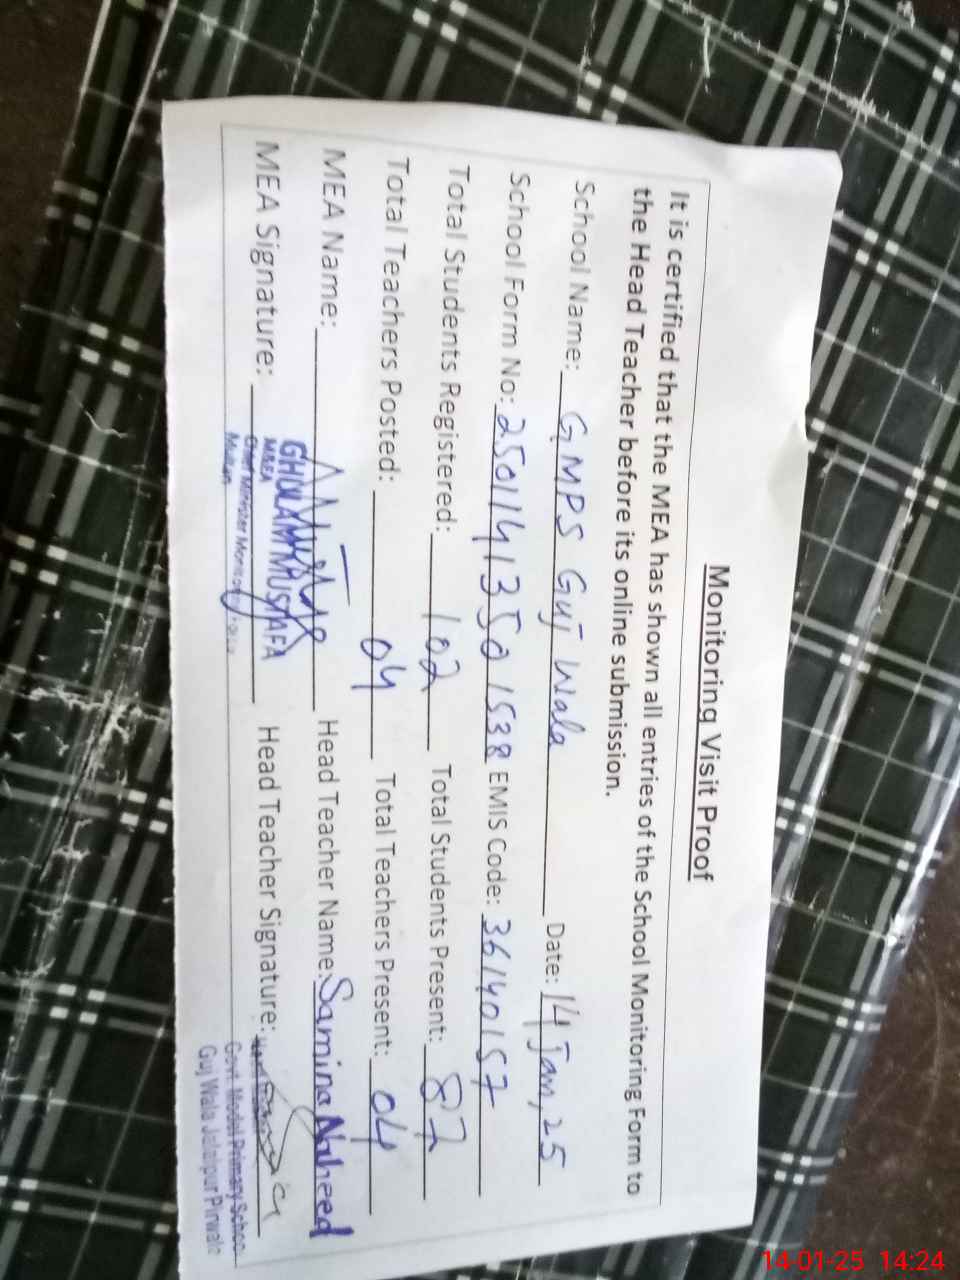 Monitoring Visit Proof
It is certified that the MEA has shown all entries of the School Monitoring Form to
the Head Teacher before its online submission.
School Name: GMPS Guj Wala Date: 14 Jan, 25
School Form No: 2501141350 1538 EMIS Code: 36140157
Total Students Registered: 102 Total Students Present: 87
Total Teachers Posted: 04 Total Teachers Present: 04
MEA Name: Head Teacher Name: Samina Naheed
MEA Signature: GHULAM MUSTAFA Head Teacher Signature:
M&EA
Chief Minister Monitoring
Multan
Govt. Model Primary School
Guj Wala Jalalpur Pirwala
14-01-25 14:24